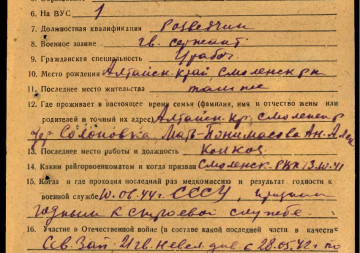 6. На ВУС 1
7. Должностная квалификация Разведчик
8. Военное звание гв. сержант
9. Гражданская специальность Чрабоч
10. Место рождения Алтайск. край Смоленск р-н
11. Последнее место жительства там же
12. Где проживает в настоящее время семья (фамилия, имя и отчество жены или
родителей и точный их адрес) Алтайск. кр. Смоленск. р
дер Солоновка Мать Ан.
13. Последнее место работы и должность Колхоз
14. Каким райгорвоенкоматом и когда призван Смоленск. РВК 41
15. Когда и где проходил последний раз медкомиссию и результат годности к
военной службе 10.06.44г. СССУ, признан
годным к строевой службе
16. Участие в Отечественной войне (в составе какой последней части, в качеств
Сев. Зап. с 28.05.42г. по